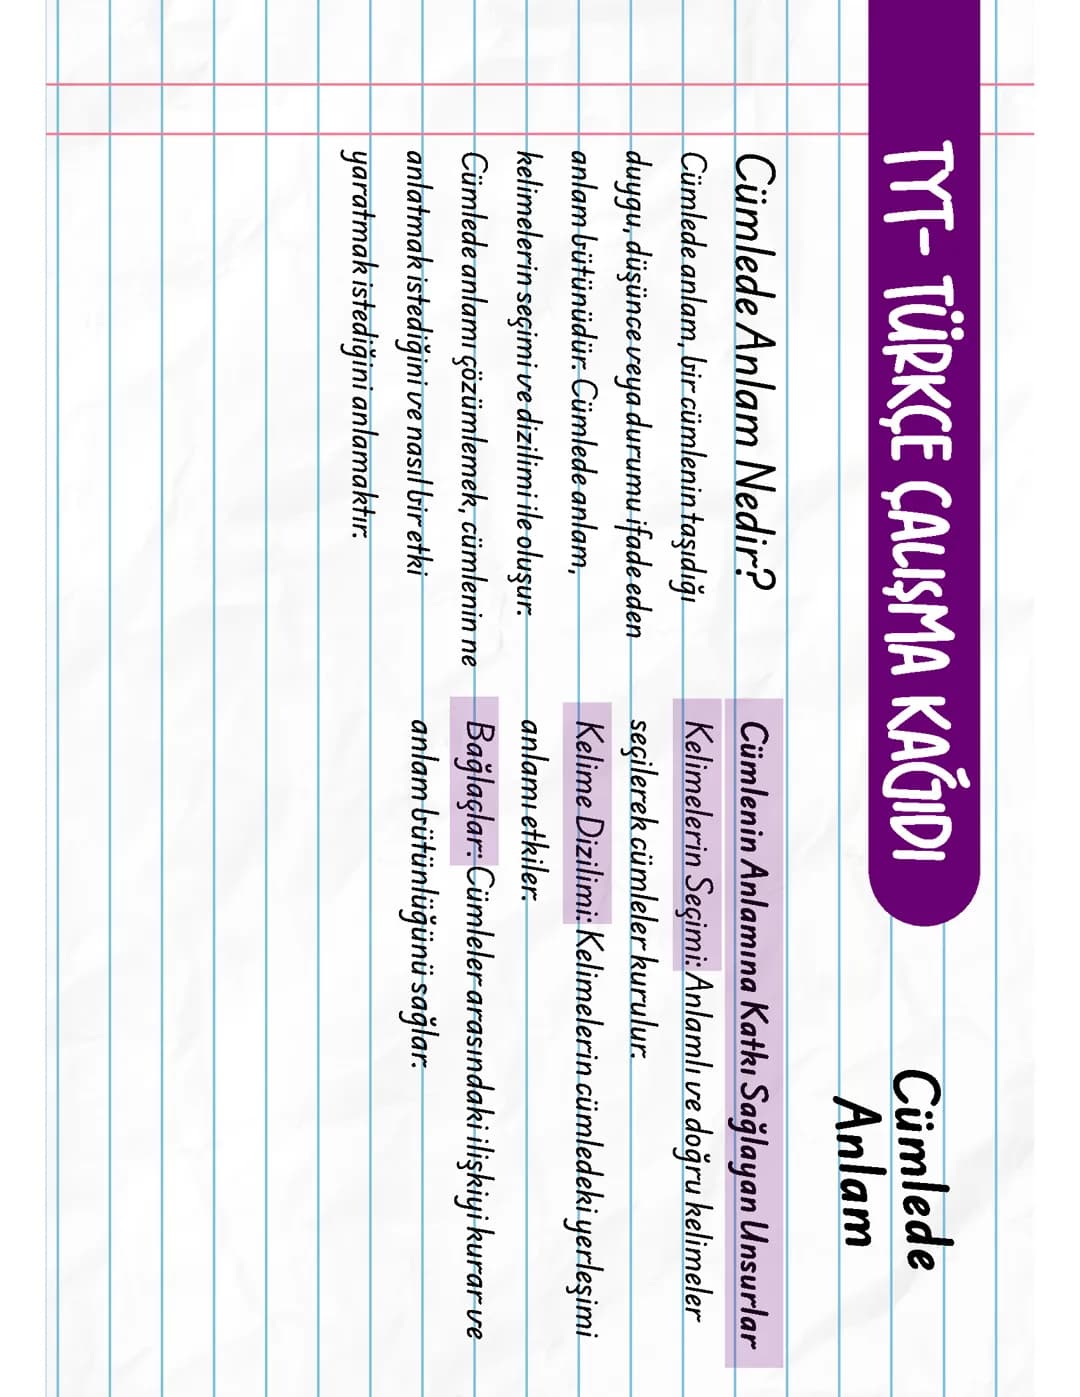 TYT- TÜRKÇE ÇALIŞMA KAĞIDI
Cümlede
Anlam
Cümlede Anlam Nedir?
Cümlede anlam, bir cümlenin taşıdığı
duygu, düşünce veya durumu ifade eden
anlam bütünüdür. Cümlede anlam,
kelimelerin seçimi ve dizilimi ile oluşur.
Cümlede anlamı çözümlemek, cümlenin ne
anlatmak istediğini ve nasıl bir etki
yaratmak istediğini anlamaktır.
Cümlenin Anlamına Katkı Sağlayan Unsurlar
Kelimelerin Seçimi: Anlamlı ve doğru kelimeler
seçilerek cümleler kurulur.
Kelime Dizilimi: Kelimelerin cümledeki yerleşimi
anlamı etkiler.
Bağlaçlar: Cümleler arasındaki ilişkiyi kurar ve
anlam bütünlüğünü sağlar.